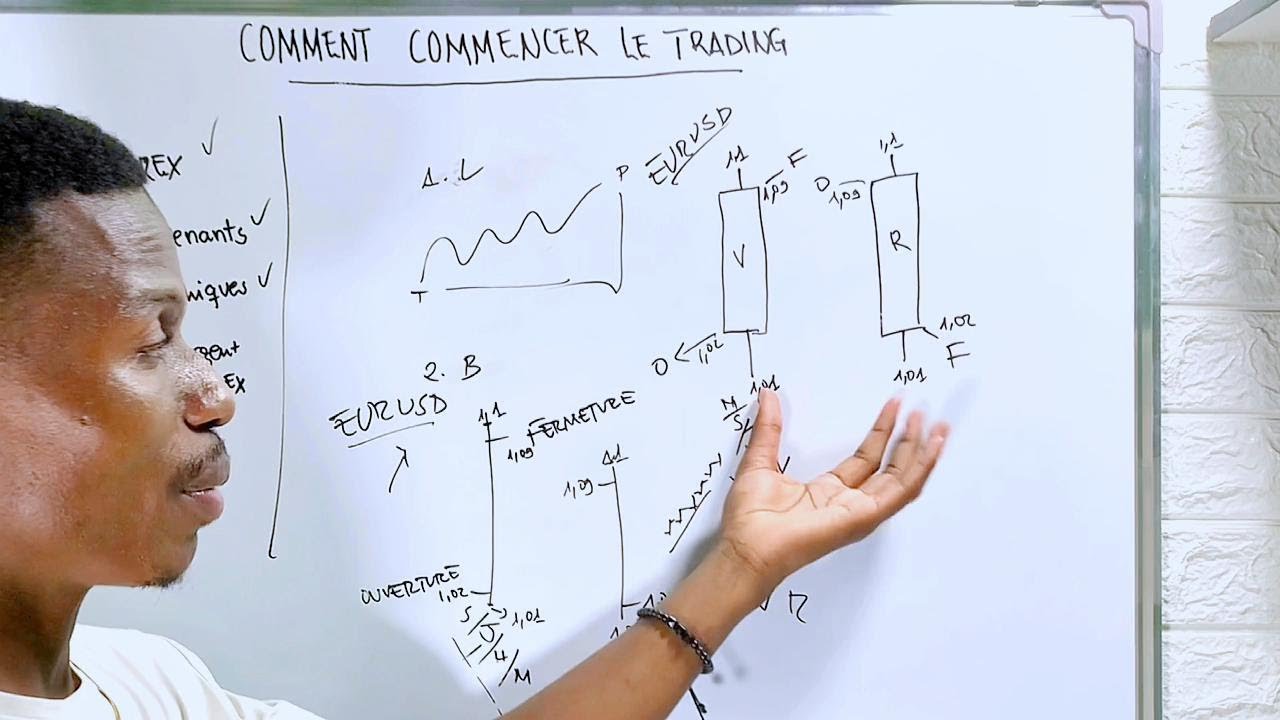 COMMENT COMMENCER LE TRADING
REX ✓
enants ✓
niques ✓
gent
EX
1. L
P
T
EURUSD
1,1
1,09 F
V
O ← 1,02
1,01
1,1
O 1,09
R
1,02
F
1,01
2. B
EURUSD
1,1
1,09 FERMETURE
OUVERTURE
1,02
1,01
S/J/4/M
1,1
1,09
M
5
V
R